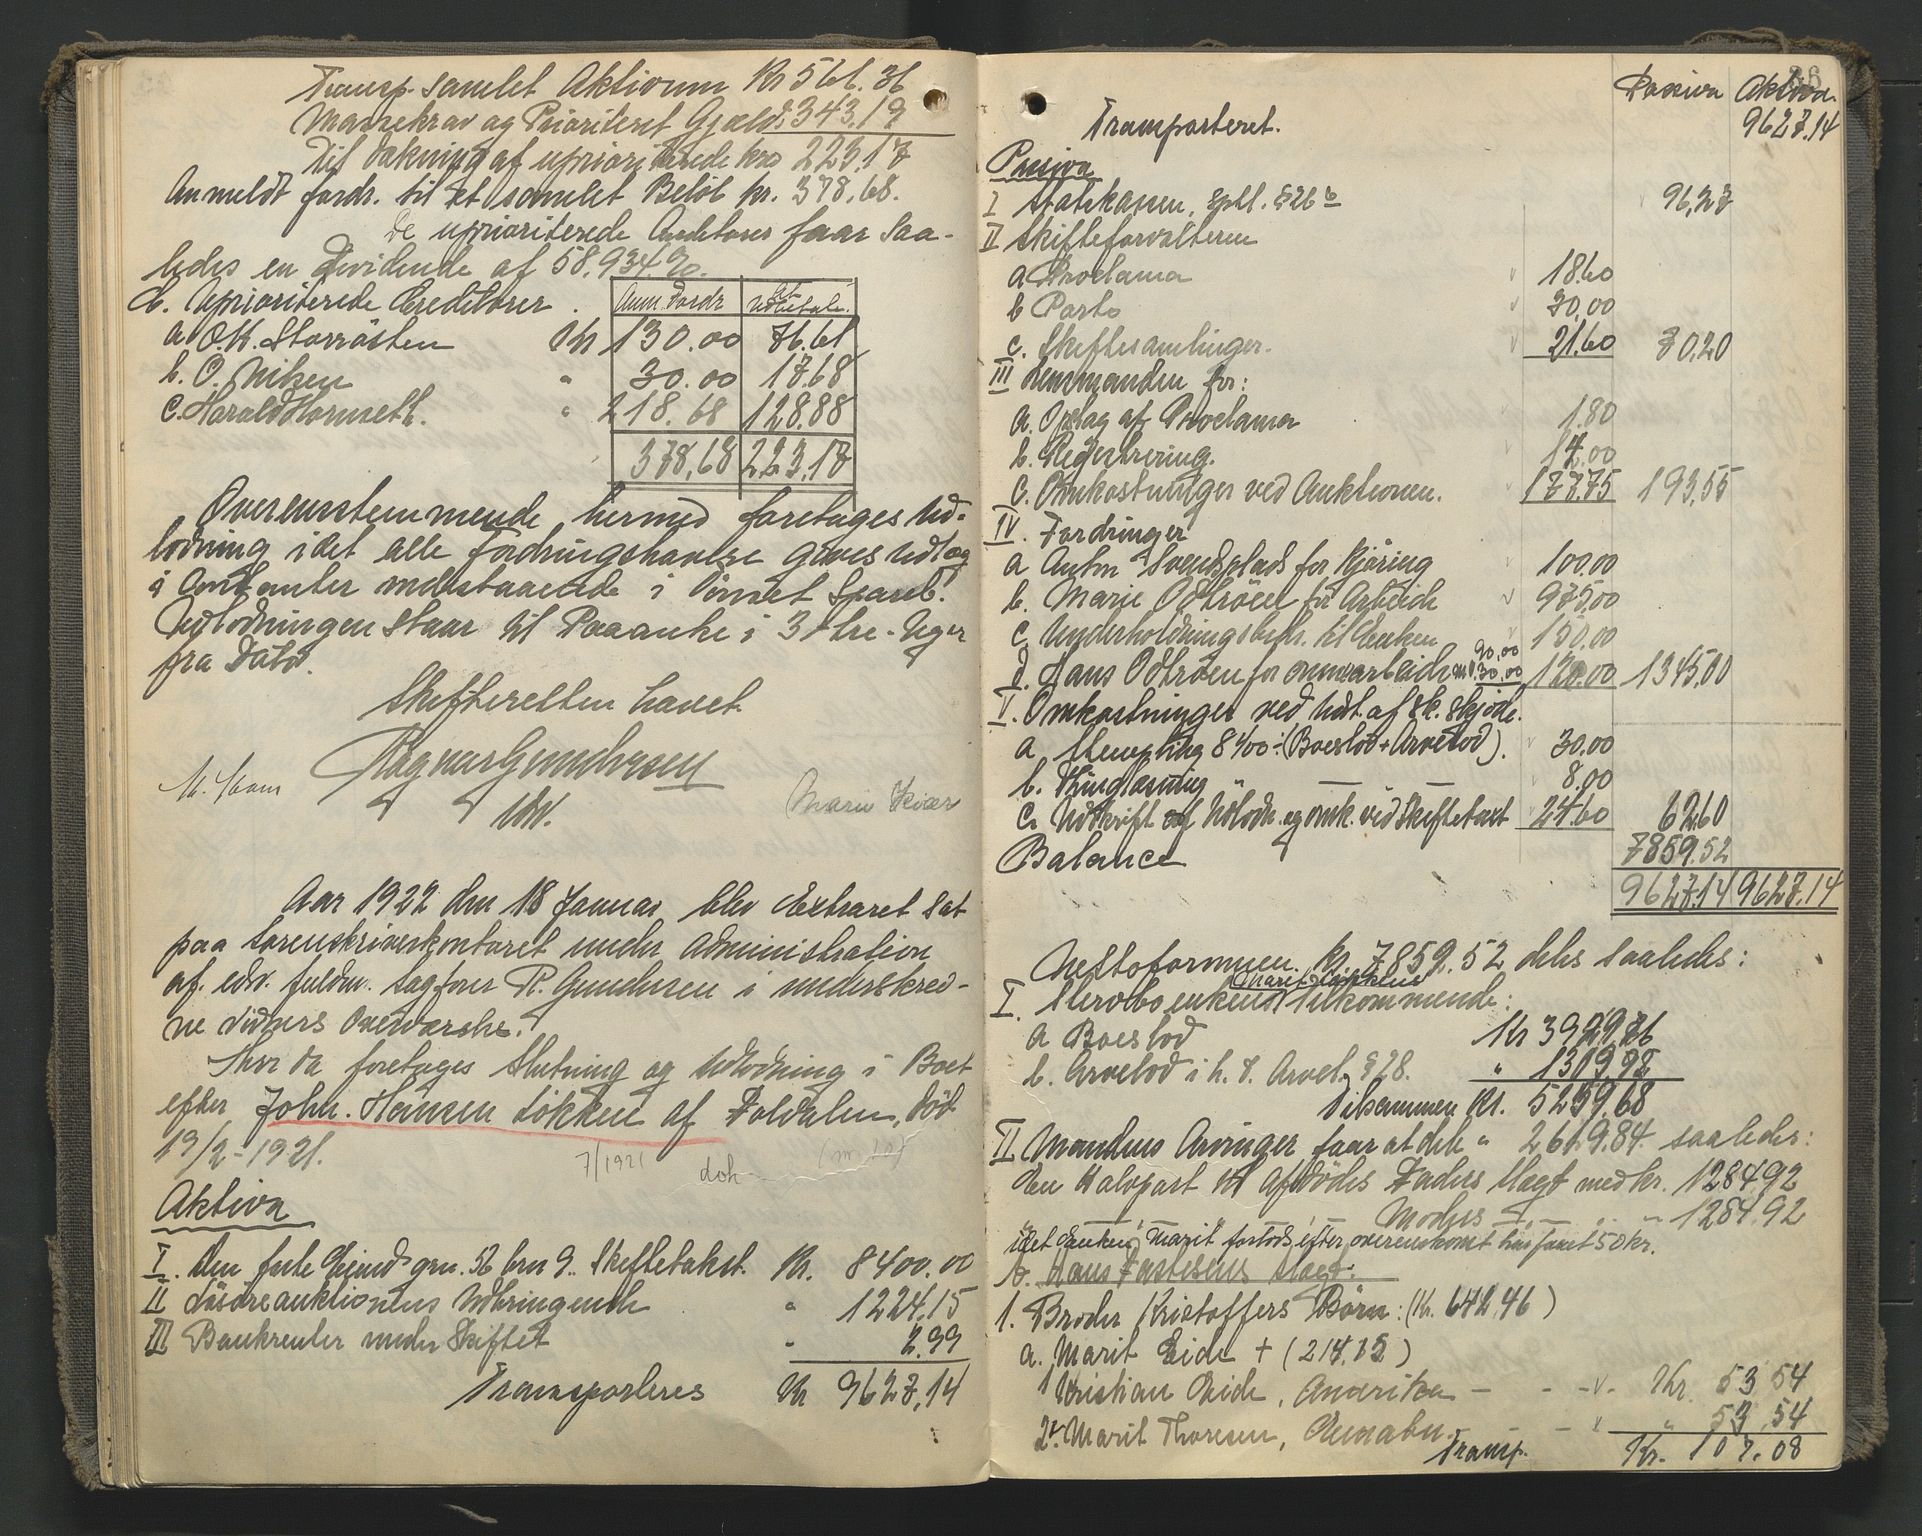 Transp. samlet Aktivum Kr 566.36
Massekrav og Prioriteret Gjæld " 343.19
Til dækning af uprioriterede krav 223.17
Anmeldt fordr. til et samlet Beløb kr. 378.68.
De uprioriterede Creditorer faar saa-
ledes en Dividende af 58.934 %.
C. Uprioriterede Creditorer. Anm. Fordr Udbetale.
a O.K. Storrøsten Kr 130.00 76.61
b. O. Nilsen " 30.00 17.68
c. Harald " 218.68 128.88
378,68 223.17
Overensstemmende hermed foretages Ud-
lodning idet alle Fordringshavere gives Udlæg
i Contanter indestaaende i Spareb.
Udlodningen staar til Paaanke i 3 tre - Uger
fra Dato.
Skifteretten hævet.
Ragnar Gundersen
edv.
Marie Kvær
Aar 1922 den 18 Januar blev Extraret sat
paa Sorenskriverkontoret under Administration
af edv. fuldm. sagfører R. Gundersen i underskrev-
ne Vidners Overværelse.
Hvor da foretages Slutning og Udlodning i Boet
efter John Hansen Løkken af Foldalen, død
19/2-1921.
7/1921
Aktiva
I. Den faste Eiend. grn. 56 brn 9. Skiftetakst. Kr. 8400.00
II Løsøreauktionens Udbringende " 1224,15
III Bankrenter under Skiftet " 2.99
Transporteres Kr 9627,14
Passiva Aktiva
Transporteret. 9627.14
Passiva
I Statskassen, § 26 b 96,27
II Skifteforvalteren
a Proclama 18.60
b Porto 30.00
c. Skiftesamlinger. 21.60 70,20
III Lensmanden for:
a. Opslag af Proclama 1.80
b. Registrering. 14.00
c. Omkostninger ved Auktionen. 177.75 193,55
IV. Fordringer
a Anton Svendsplads for Kjøring 100.00
b. Marie Odtrøen for Arbeide 975,00
c Underholdningsbidr. til Enken 150.00
d. Hans Odtrøen for onnearbeide 90.00 30.00 120.00 1345.00
V. Omkostninger ved Udst. af sk. skjøde.
a, Stempling 8400 ÷ (Boeslod + Arvelod). 30.00
b. Thinglæsning " — — 8.00
c. Udskrift af Udlodn. og omk. ved Skiftetaxt 24.60 62.60
Balance 7859.52
9627.14 9627.14
Nettoformuen Kr. 7859.52 deles saaledes:
I. Stervboenkens Tilkommende:
a Boeslod Kr 3929.76
b. Arvelod i h. t. Arvel. § 28. " 1309.92
Tilsammen Kr. 5239.68
II Mandens Arvinger faar at dele " 2619.84 saaledes:
den Halvpart til Afdødes Faders Slægt med kr. 1284.92
— " — " — Moders — " — " — " — 1284.92
idet Enken Marit forlods efter overenskomst har faaet 50 kr.
1. Broder Kristoffers Børn: (Kr. 642.46)
a. Marit Eide + (214.15)
1 Kristian Eide, Amerika — Kr. 53.54
2. Marit Thoresen, " 53,54
Transp. Kr. 107.08